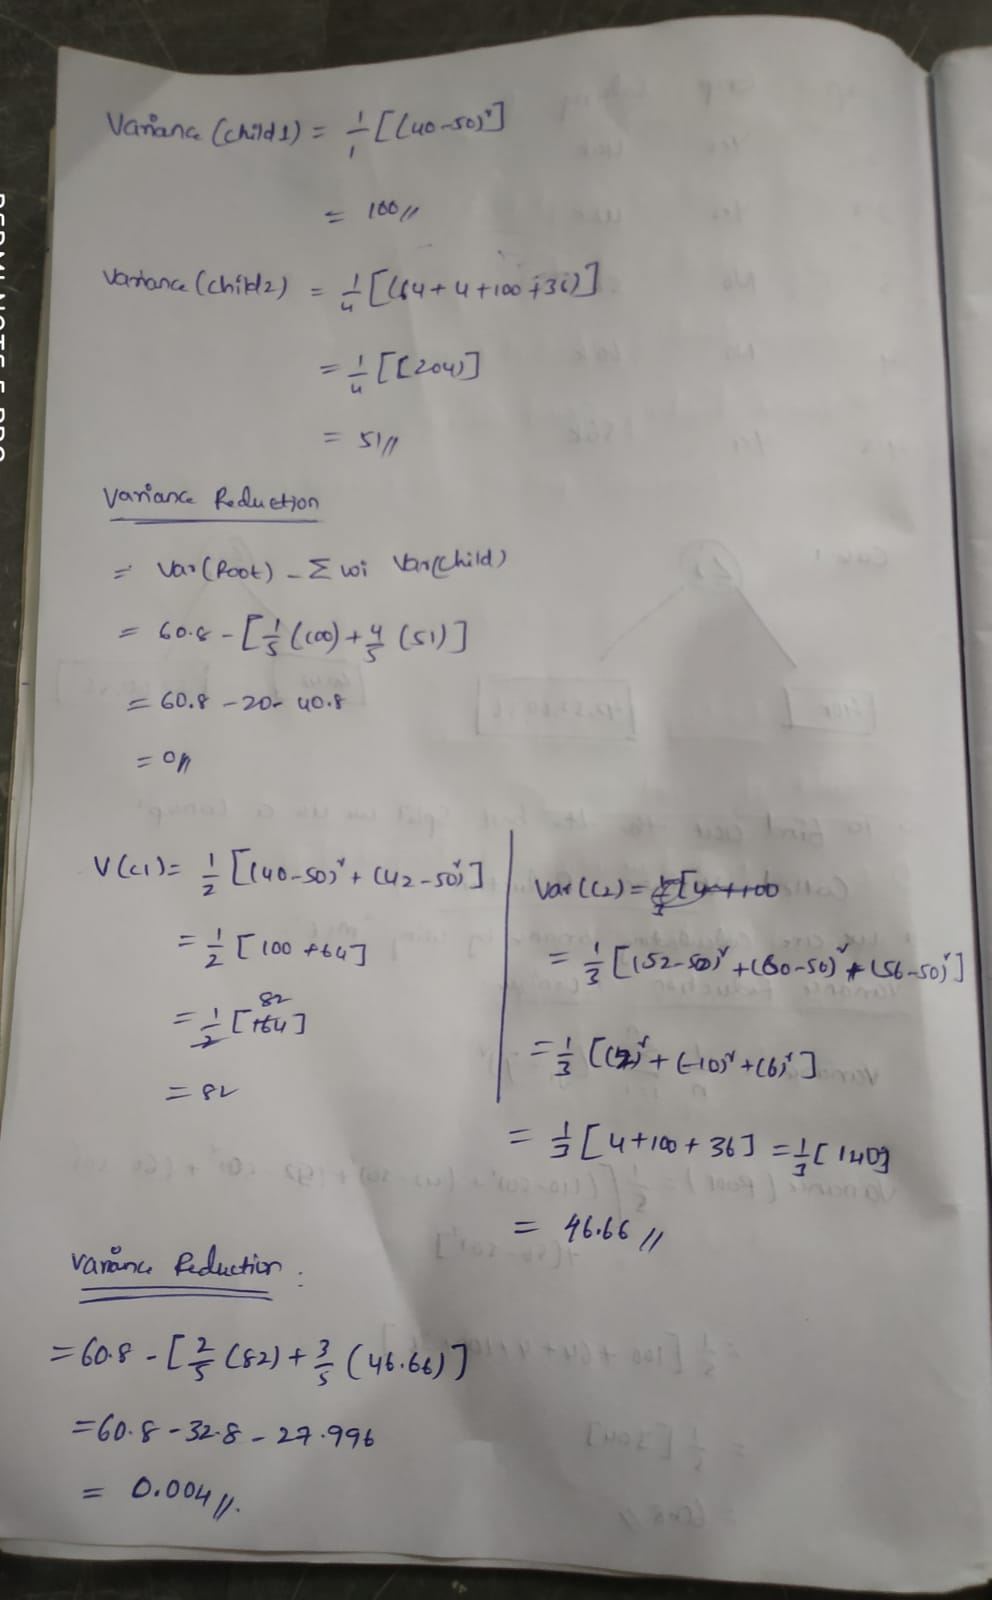 Variance (child1) = 1/1 [(40-50)²]
= 100//
Variance (child2) = 1/4 [(64+4+100+36)]
= 1/4 [(204)]
= 51//
Variance Reduction
= Var(Root) - Σ wi Var(Child)
= 60.8 - [1/5 (100) + 4/5 (51)]
= 60.8 - 20 - 40.8
= 0//
V(c1) = 1/2 [(40-50)² + (42-50)²]
= 1/2 [100 + 64]
82
= 1/2 [164]
= 82
Var(C2) =
= 1/3 [(52-50)² + (60-50)² + (56-50)²]
= 1/3 [(2)² + (-10)² + (6)²]
= 1/3 [4+100+36] = 1/3 [140]
= 46.66 //
Variance Reduction :
= 60.8 - [2/5 (82) + 3/5 (46.66)]
= 60.8 - 32.8 - 27.996
= 0.004 //.